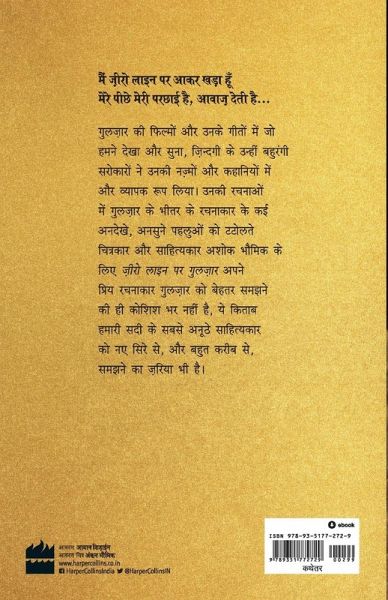 मैं ज़ीरो लाइन पर आकर खड़ा हूँ
मेरे पीछे मेरी परछाई है, आवाज़ देती है...
गुलज़ार की फिल्मों और उनके गीतों में जो
हमने देखा और सुना, ज़िन्दगी के उन्हीं बहुरंगी
सरोकारों ने उनकी नज़्मों और कहानियों में
और व्यापक रूप लिया। उनकी रचनाओं
में गुलज़ार के भीतर के रचनाकार के कई
अनदेखे, अनसुने पहलुओं को टटोलते
चित्रकार और साहित्यकार अशोक भौमिक के
लिए ज़ीरो लाइन पर गुलज़ार अपने
प्रिय रचनाकार गुलज़ार को बेहतर समझने
की ही कोशिश भर नहीं है, ये किताब
हमारी सदी के सबसे अनूठे साहित्यकार
को नए सिरे से, और बहुत करीब से,
समझने का ज़रिया भी है।
ebook
ISBN 978-93-5177-272-9
9 789351 772729
00299
कथेतर
आवरण
आवरण चित्र
भौमिक
harpercollins.co.in
HarperCollinsIndia @HarperCollinsIN